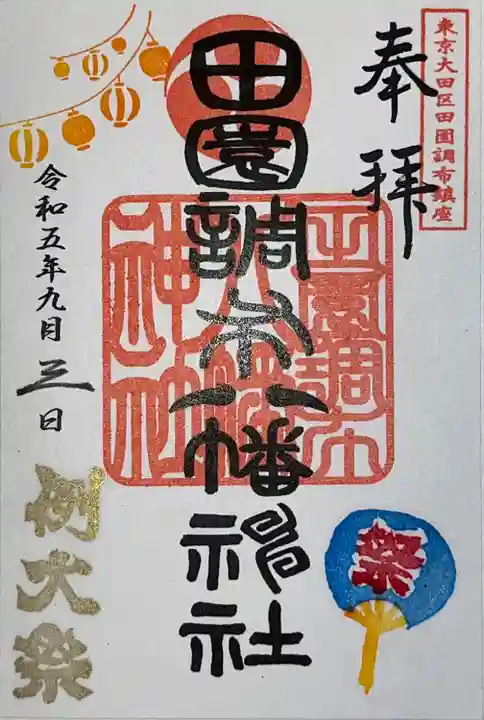 東京大田区田園調布鎮座
奉拝
田園調布八幡神社
田園調布
八幡
神社
令和五年九月三日
例大祭
祭